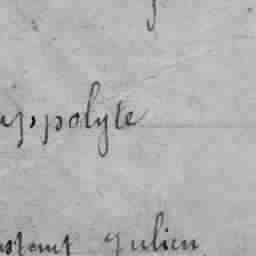 yppolyte
nstant Julien